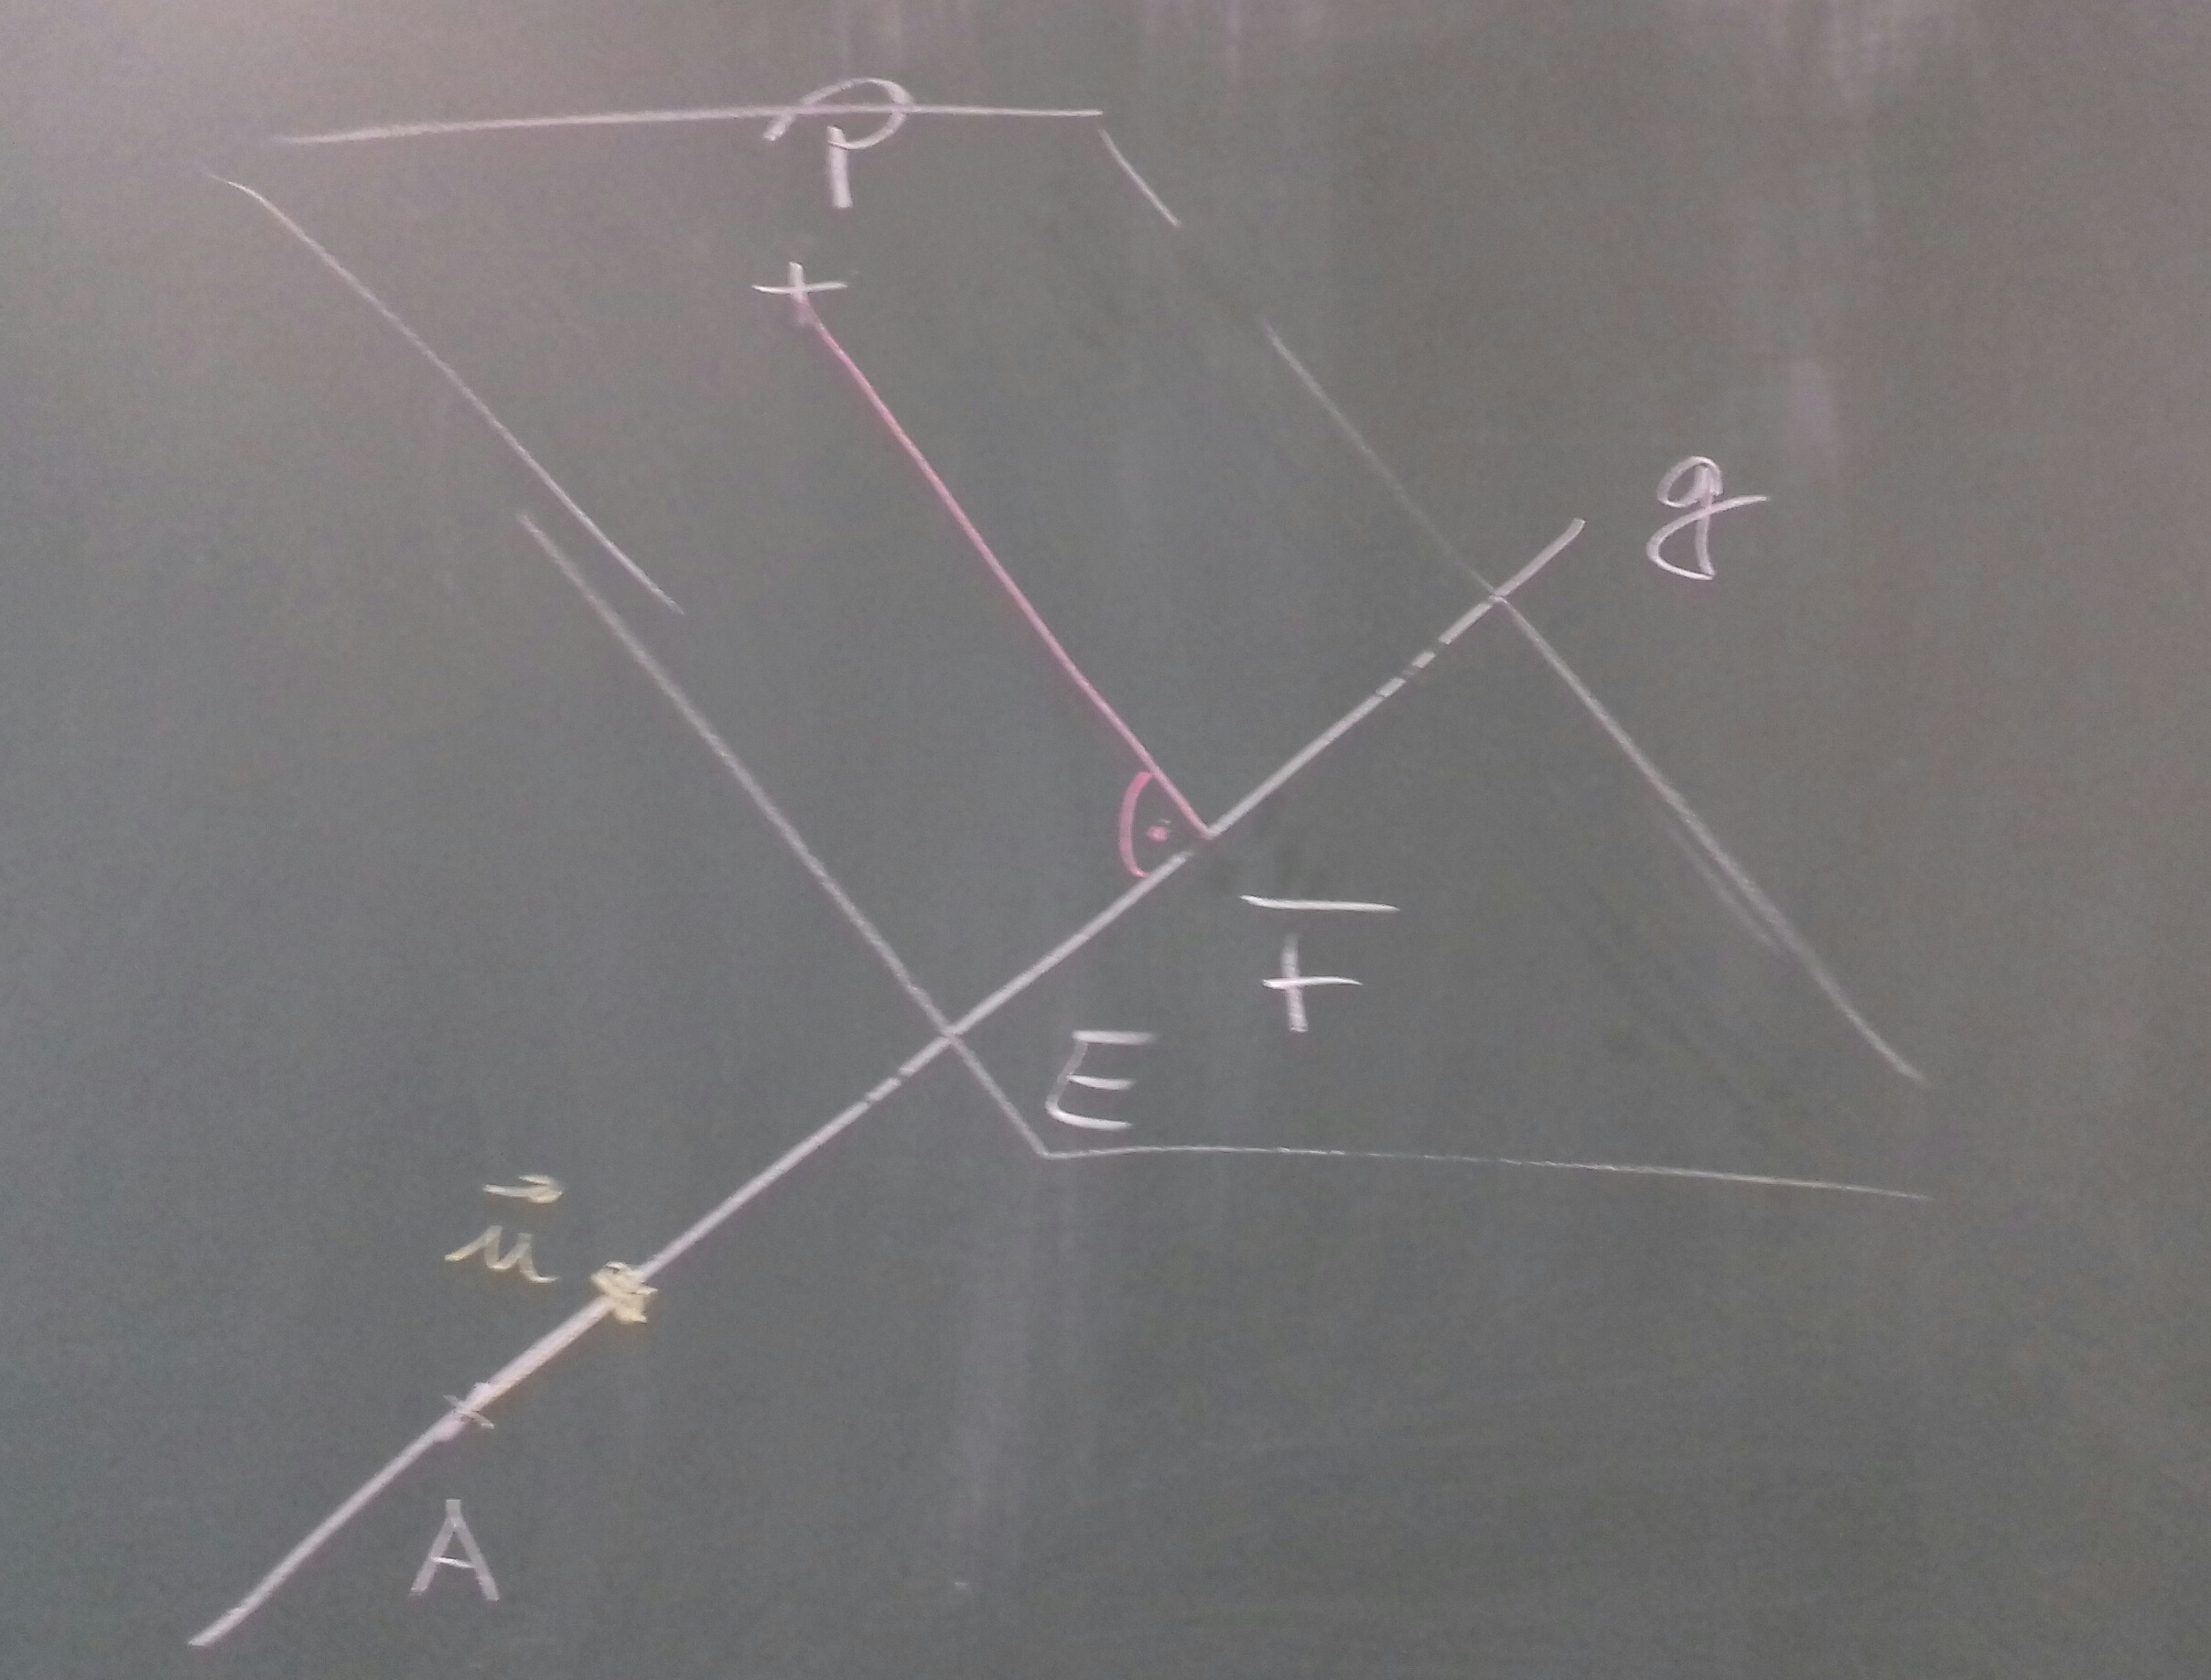 P
g
F
E
u⃗
A